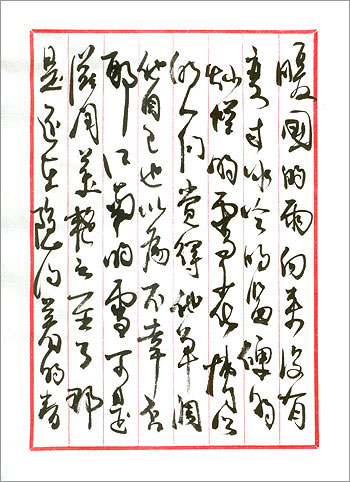 暖國的雨向来没有
变过冰冷的坚硬的
灿烂的雪花博识
的人们觉得他单调
他自己也以为不幸否
耶江南的雪可是
滋润美艳之至了那
是还在隐约着的青